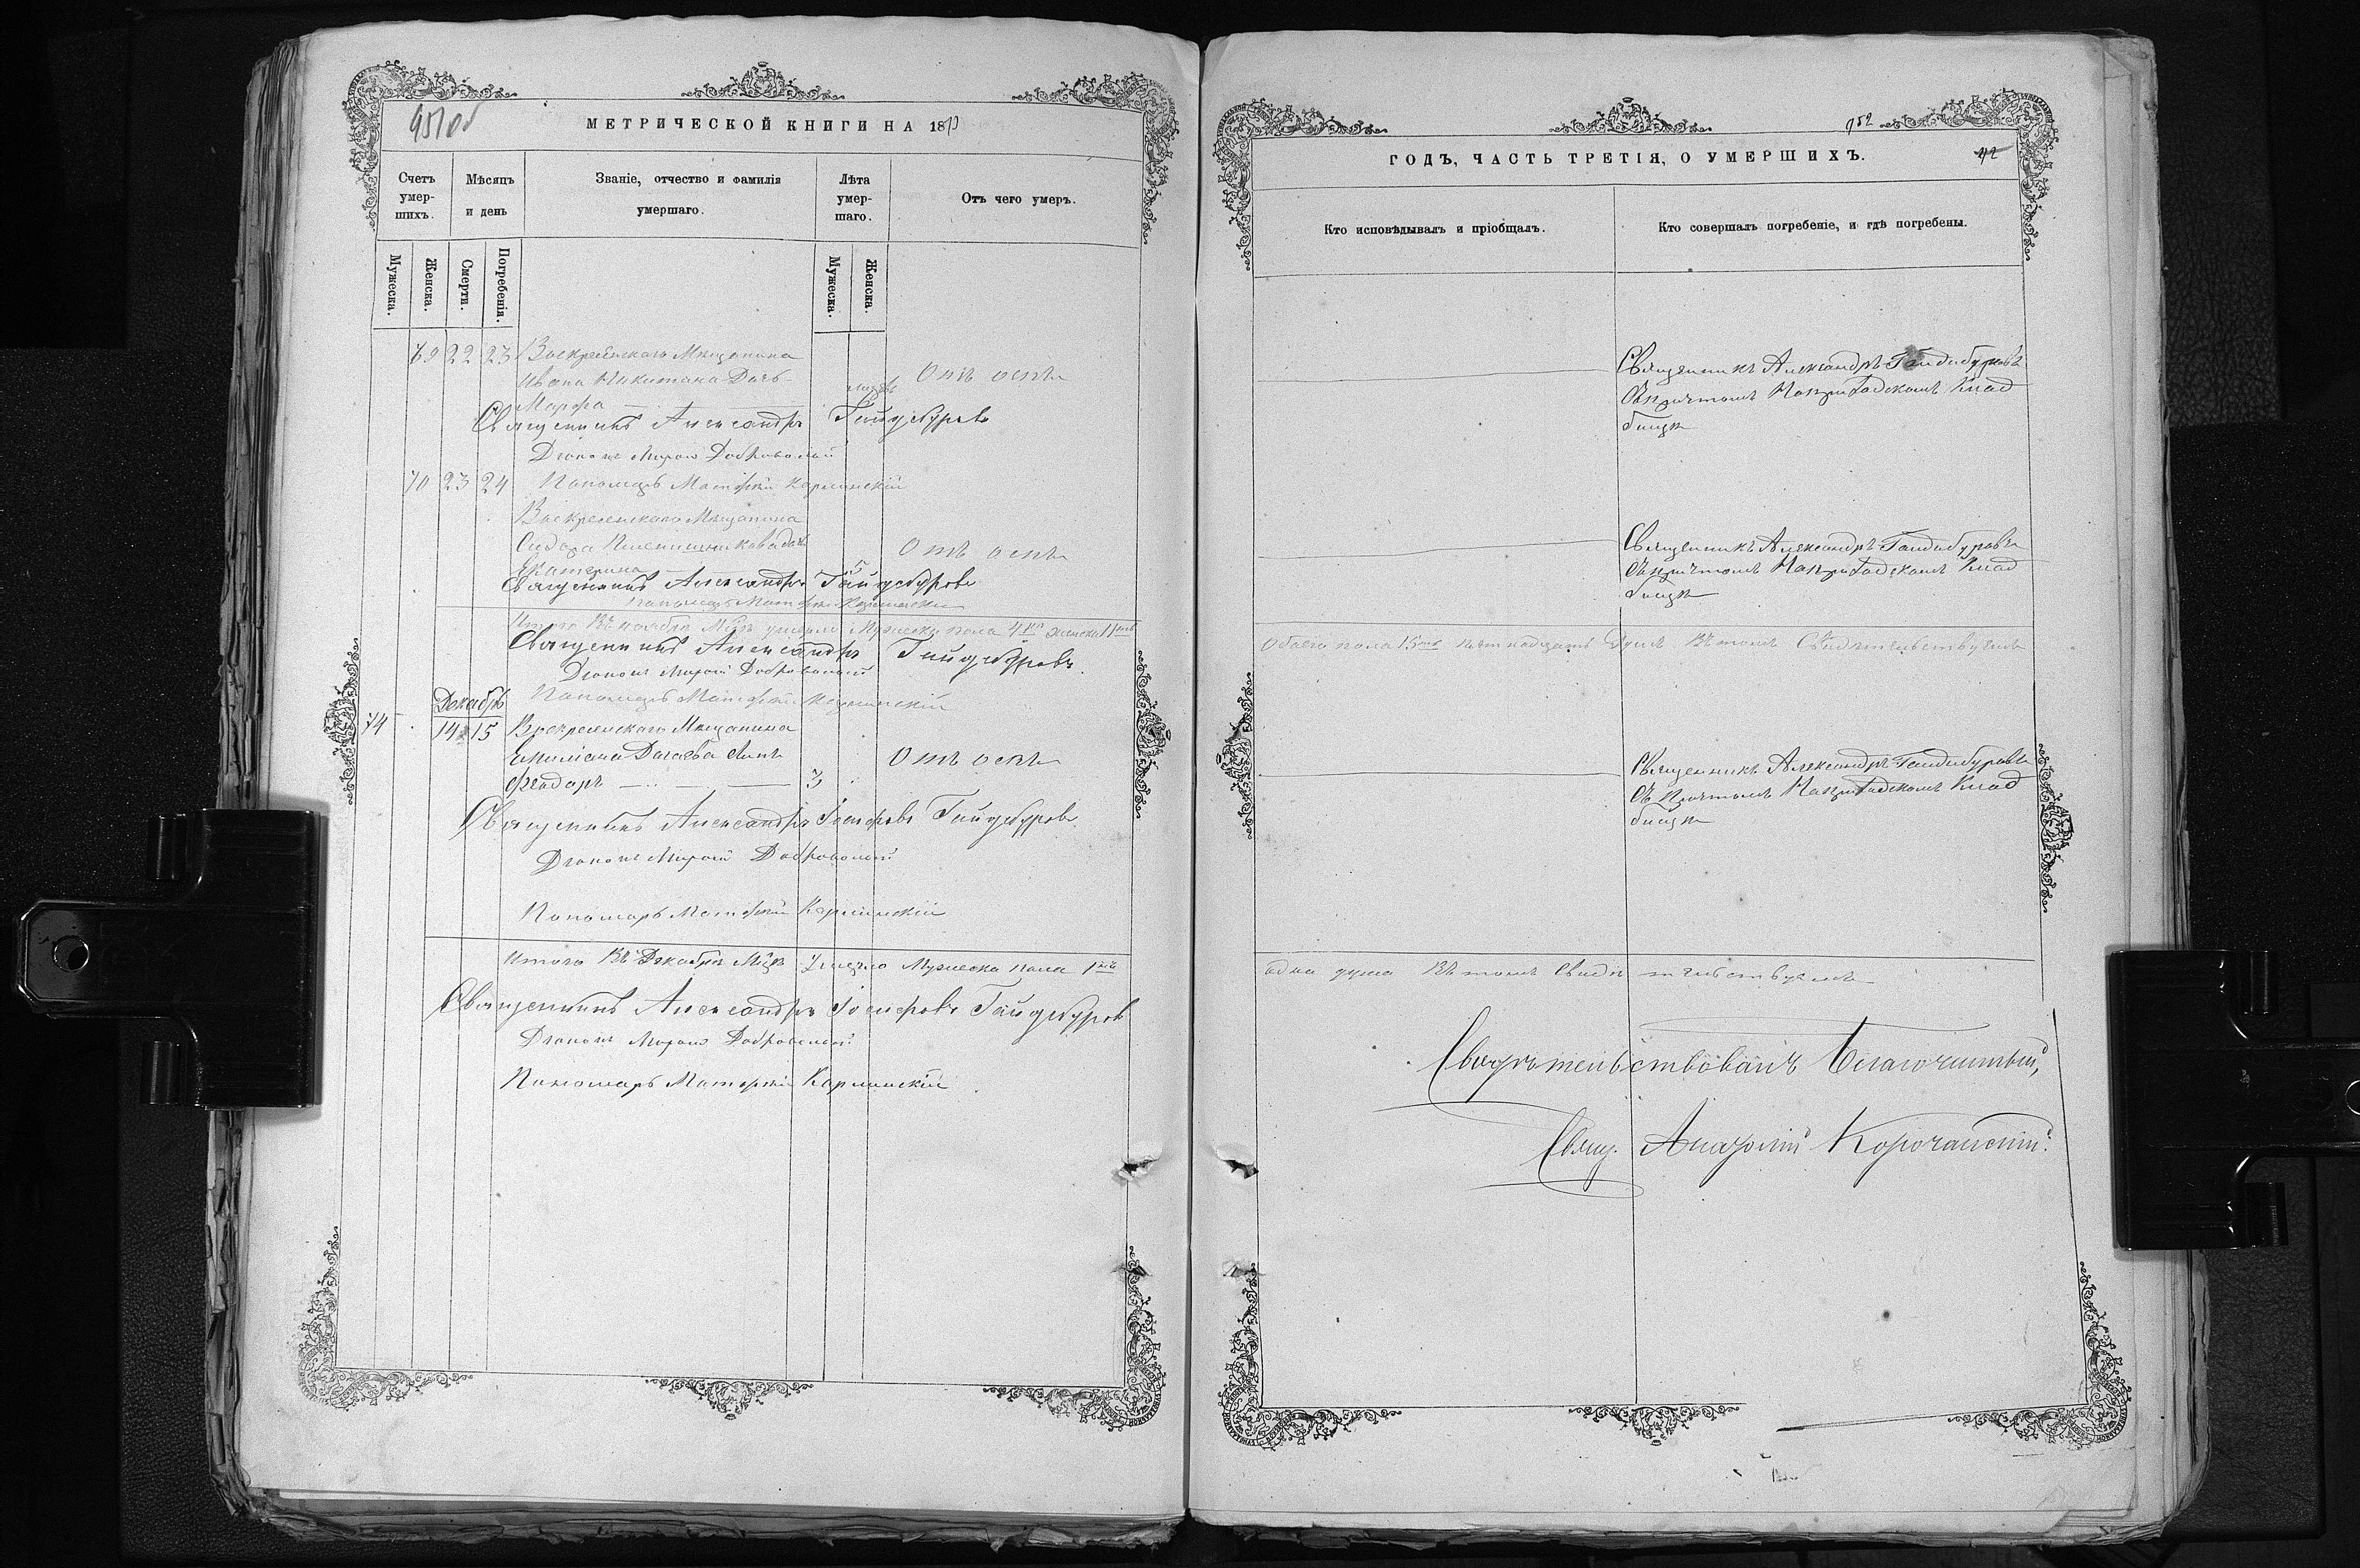 951об
МЕТРИЧЕСКОЙ КНИГИ НА 18
Счетъ умер-шихъ.
Мѣсяцъ и день
Званіе, отчество и фамилія умершаго.
Лѣта умер-шаго.
Отъ чего умеръ.
Мужеска.
Женска.
Смерти.
Погребенія.
Мужеска.
Женска.
69 22 23 Воскресенскаго Мѣщанина
Ивана Никитина Дочь
Марфа
Отъ оспы
Священникъ Александръ Гайдебуровъ
Діаконъ Миронъ Добровольскій
70 23 24 Пономарь Матфей Карминскій
Воскресенскаго Мѣщанина
Сидора Пшеничникова дочь
Екатерина 5 Отъ оспы
Священникъ Александръ Гайдебуровъ
Пономарь Матфей Карминскій
Итого Въ ноябрѣ Мцѣ умерло Мужеска пола 4 женска 11
Священникъ Александръ Гайдебуровъ
Діаконъ Миронъ Добровольскій
Пономарь Матфей Карминскій
Декабрь
74 14 15 Воскресенскаго Мѣщанина
Сынъ
Феодоръ 3 Отъ оспы
Священникъ Александръ Іосифовъ Гайдебуровъ
Діаконъ Миронъ Добровольскій
Пономарь Матфей Карминскій
Итого Въ Декабрѣ Мцѣ умерло Мужеска пола 1
Священникъ Александръ Іосифовъ Гайдебуровъ
Діаконъ Миронъ Добровольскій
Пономарь Матфей Карминскій
952
ГОДЪ, ЧАСТЬ ТРЕТІЯ, О УМЕРШИХЪ.
42
Кто исповѣдывалъ и пріобщалъ.
Кто совершалъ погребеніе, и гдѣ погребены.
Священникъ Александръ Гайдебуровъ
Съ причтомъ На Градскомъ Клад
бищѣ
Священникъ Александръ Гайдебуровъ
Съ причтомъ На Градскомъ Клад
бищѣ
Обоего пола 15 пятнадцать Душъ Въ томъ Свидѣтельствуемъ
Священникъ Александръ Гайдебуровъ
Съ Причтомъ На Градскомъ Клад
бищѣ
одна душа Въ томъ Свидѣтельствуемъ
Свидѣтельствовалъ Благочинный,
Свящ. Корочанскій